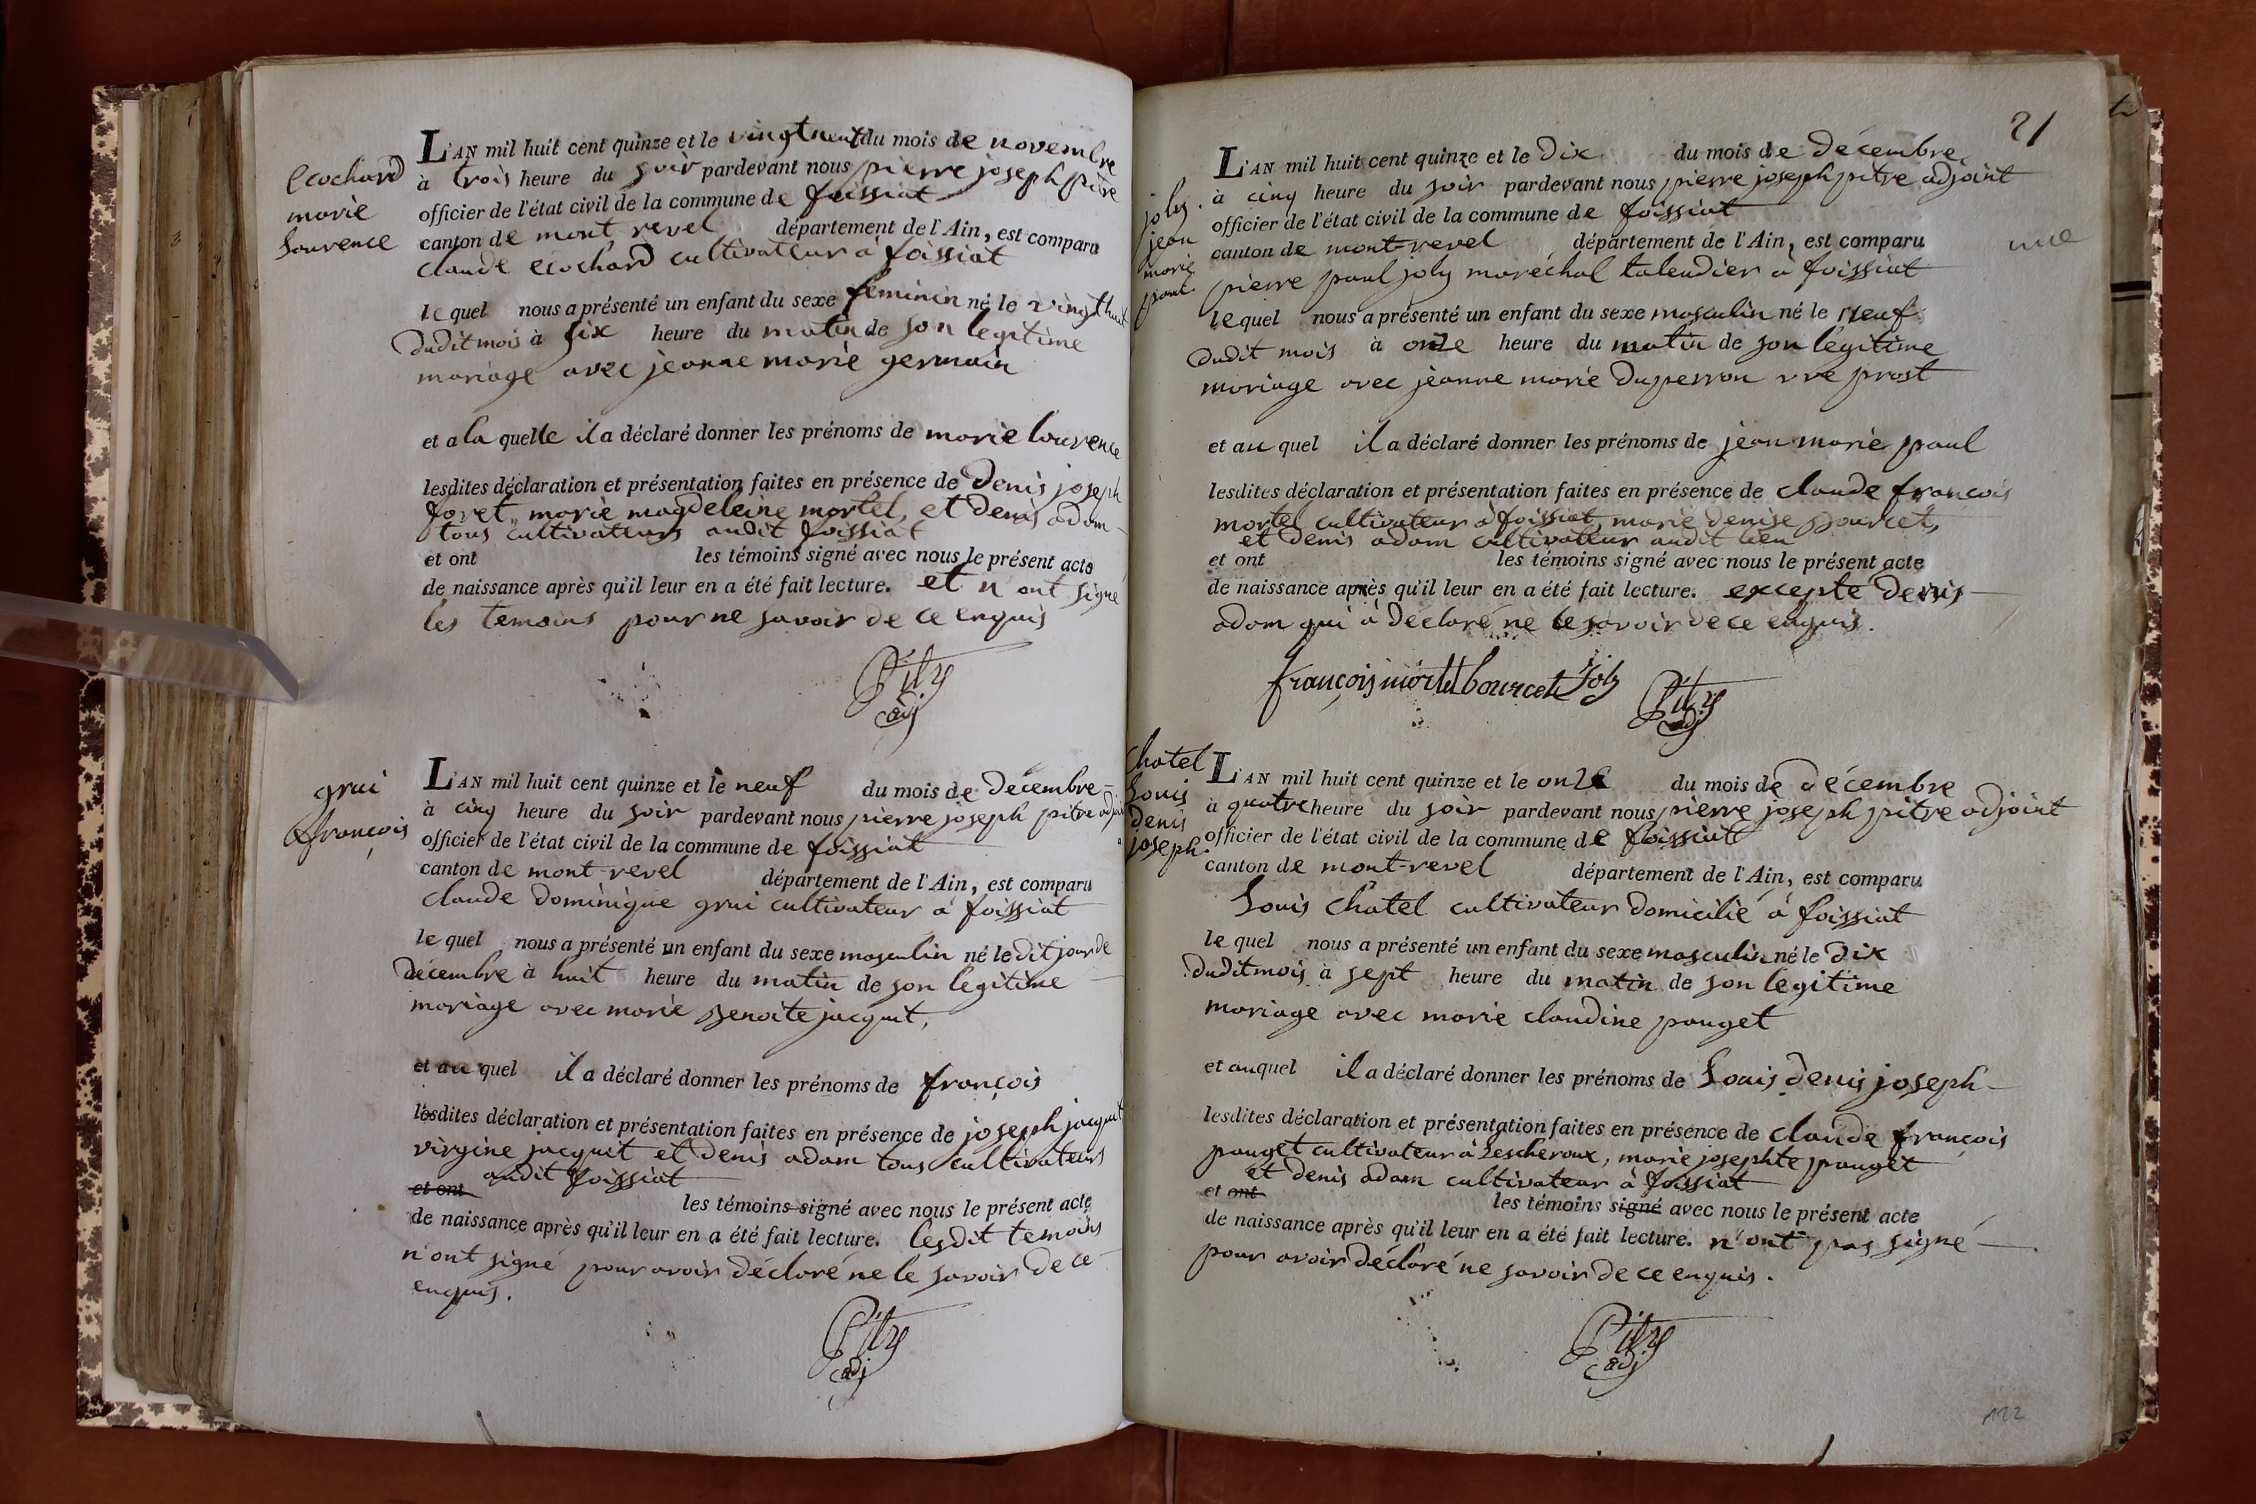 ecochard
marie
Laurence
L'AN mil huit cent quinze et le vingt neuf du mois de novembre
à trois heure du soir pardevant nous pierre joseph pitre
officier de l'état civil de la commune de foissiat
canton de mont revel département de l'Ain, est comparu
claude ecochard cultivateur à foissiat
le quel nous a présenté un enfant du sexe feminin né le vingt huit
dudit mois à six heure du matin de son legitime
mariage avec jeanne marie germain
et a la quelle il a déclaré donner les prénoms de marie laurence
lesdites déclaration et présentation faites en présence de Denis joseph
foret, marie magdeleine mortel, et denis adam
tous cultivateurs audit foissiat
et ont les témoins signé avec nous le présent acte
de naissance après qu'il leur en a été fait lecture. et n'ont signe
les temoins pour ne savoir de ce enquis
Pitre
adj
grui
françois
L'AN mil huit cent quinze et le neuf du mois de Décembre
à cinq heure du soir pardevant nous pierre joseph pitre adjoint
officier de l'état civil de la commune de foissiat
canton de mont-revel département de l'Ain, est comparu
claude dominique grui cultivateur à foissiat
le quel nous a présenté un enfant du sexe masculin né le dit jour de
décembre à huit heure du matin de son legitime
mariage avec marie benoite jacquit,
et au quel il a déclaré donner les prénoms de françois
lesdites déclaration et présentation faites en présence de joseph jacquit
virgine jacquit et denis adam tous cultivateurs
audit foissiat
et ont les témoins signé avec nous le présent acte
de naissance après qu'il leur en a été fait lecture. lesdit temoins
n'ont signé pour avoir déclaré ne le savoir de ce
enquis.
Pitre
adj
21
joly
jean
marie
paul
L'AN mil huit cent quinze et le Dix du mois de décembre
à cinq heure du soir pardevant nous pierre joseph pitre adjoint
officier de l'état civil de la commune de foissiat
canton de mont-revel département de l'Ain, est comparu
pierre paul joly maréchal talendier à foissiat
le quel nous a présenté un enfant du sexe masculin né le neuf
dudit mois à onze heure du matin de son legitime
mariage avec jeanne marie Duperron vve prost
et au quel il a déclaré donner les prénoms de jean marie paul
lesdites déclaration et présentation faites en présence de claude françois
mortel cultivateur à foissiat, marie denise pourcet,
et denis adam cultivateur audit lieu
et ont les témoins signé avec nous le présent acte
de naissance après qu'il leur en a été fait lecture. excepte denis
adam qui à déclaré ne le savoir de ce enquis.
françois mortel bourcet Joly Pitre
adj
chatel
Louis
denis
joseph
L'AN mil huit cent quinze et le onze du mois de décembre
à quatre heure du soir pardevant nous pierre joseph pitre adjoint
officier de l'état civil de la commune de foissiat
canton de mont-revel département de l'Ain, est comparu
Louis Chatel cultivateur domicilié à foissiat
le quel nous a présenté un enfant du sexe masculin né le dix
dudit mois à sept heure du matin de son legitime
mariage avec marie claudine pauget
et auquel il a déclaré donner les prénoms de Louis denis joseph
lesdites déclaration et présentation faites en présence de claude françois
pauget cultivateur à Lescheroux, marie josephte pauget
et denis adam cultivateur à foissiat
et ont les témoins signé avec nous le présent acte
de naissance après qu'il leur en a été fait lecture. n'ont pas signé
pour avoir déclaré ne savoir de ce enquis.
Pitre
adj
122